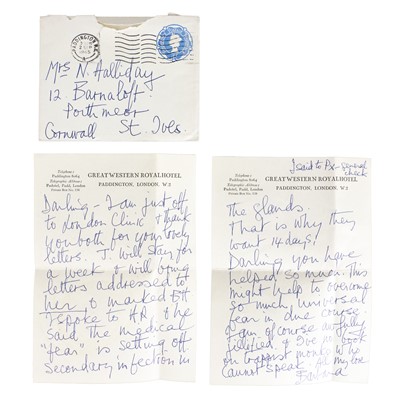 PADDINGTON W.2
Mrs N. Halliday
12. Barnaloft
Porthmeor
Cornwall St. Ives.
Telephone:
Paddington 8064
Telegraphic Address:
London
GREAT WESTERN ROYAL HOTEL
PADDINGTON, LONDON, W.2
Darling - I am just off
to London Clinic & thank
you both for your lovely
letters. J. will stay for
a week & will bring
letters addressed to
her & marked BH
I spoke to H.R. & he
said the medical
"fear" is setting off
secondary infection in
I said to Px - general
check
Telephone:
Paddington 8064
Telegraphic Address:
London
GREAT WESTERN ROYAL HOTEL
PADDINGTON, LONDON, W.2
The glands.
That is why they
want 14 days!
Darling you have
helped so much. This
might help to overcome
so much, universal
fear in due course.
I am of course awfully
& I've no book
on trappist monks who
cannot speak. All my love
Barbara